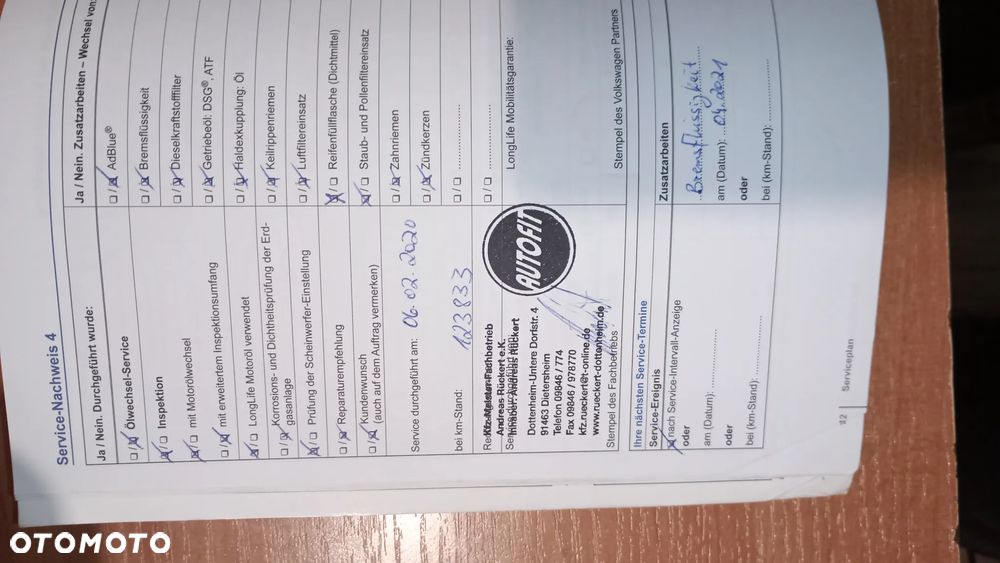 Service-Nachweis 4
Ja / Nein. Durchgeführt wurde:
☐/☒ Ölwechsel-Service
☒/☐ Inspektion
☒/☐ mit Motorölwechsel
☐/☒ mit erweitertem Inspektionsumfang
☒/☐ LongLife Motoröl verwendet
☐/☒ Korrosions- und Dichtheitsprüfung der Erd-
gasanlage
☒/☐ Prüfung der Scheinwerfer-Einstellung
☐/☒ Reparaturempfehlung
☐/☒ Kundenwunsch
(auch auf dem Auftrag vermerken)
Service durchgeführt am: 06.02.2020
bei km-Stand: 123833
Kfz-Meister-Fachbetrieb
Andreas Rückert e.K.
Inhaber Andreas Rückert
Dottenheim-Untere Dorfstr. 4
91463 Dietersheim
Telefon 09846 / 774
Fax 09846 / 978770
kfz.rueckert@t-online.de
www.rueckert-dottenheim.de
AUTOFIT
Stempel des Fachbetriebs
Ja / Nein. Zusatzarbeiten – Wechsel von:
☐/☒ AdBlue®
☐/☒ Bremsflüssigkeit
☐/☒ Dieselkraftstofffilter
☐/☒ Getriebeöl: DSG®, ATF
☐/☒ Haldexkupplung: Öl
☐/☒ Keilrippenriemen
☐/☒ Luftfiltereinsatz
☒/☐ Reifenfüllflasche (Dichtmittel)
☒/☐ Staub- und Pollenfiltereinsatz
☐/☒ Zahnriemen
☐/☒ Zündkerzen
☐/☐ ....................
☐/☐ ....................
LongLife Mobilitätsgarantie:
Stempel des Volkswagen Partners
Ihre nächsten Service-Termine
Service-Ereignis
☒ nach Service-Intervall-Anzeige
oder
am (Datum): ....................
oder
bei (km-Stand): ....................
Zusatzarbeiten
Bremsflüssigkeit
am (Datum): 04.2021
oder
bei (km-Stand): ....................
12 Serviceplan
OTOMOTO